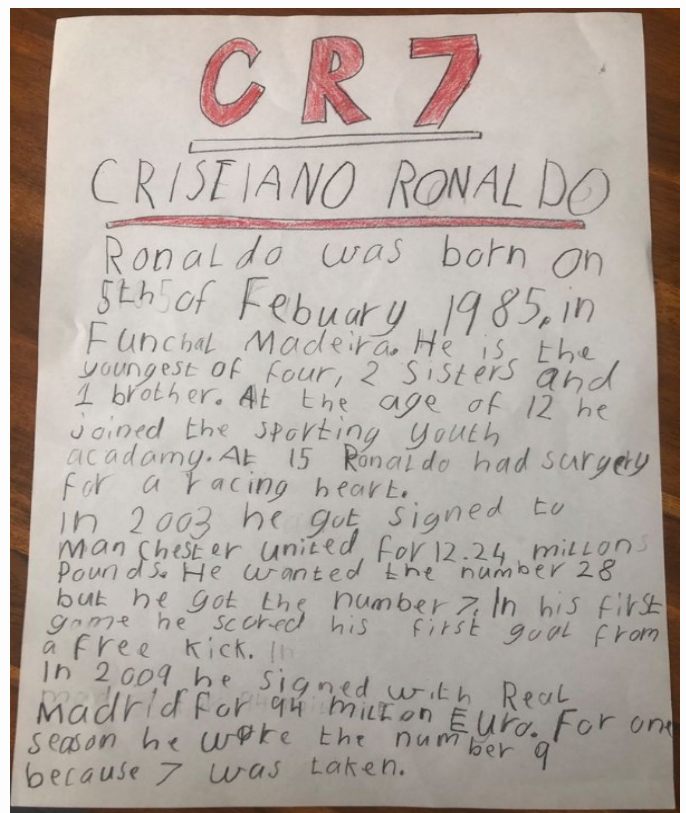 CR7
CRISEIANO RONALDO
Ronaldo was born on
5th of Febuary 1985, in
Funchal Madeira. He is the
youngest of four, 2 sisters and
1 brother. At the age of 12 he
joined the sporting youth
acadamy. At 15 Ronaldo had surgery
for a racing heart.
In 2003 he got signed to
Manchester united for 12.24 millons
Pounds. He wanted the number 28
but he got the number 7. In his first
game he scored his first goal from
a free kick.
In 2009 he signed with Real
Madrid for 94 millton Euro. For one
season he wore the number 9
because 7 was taken.